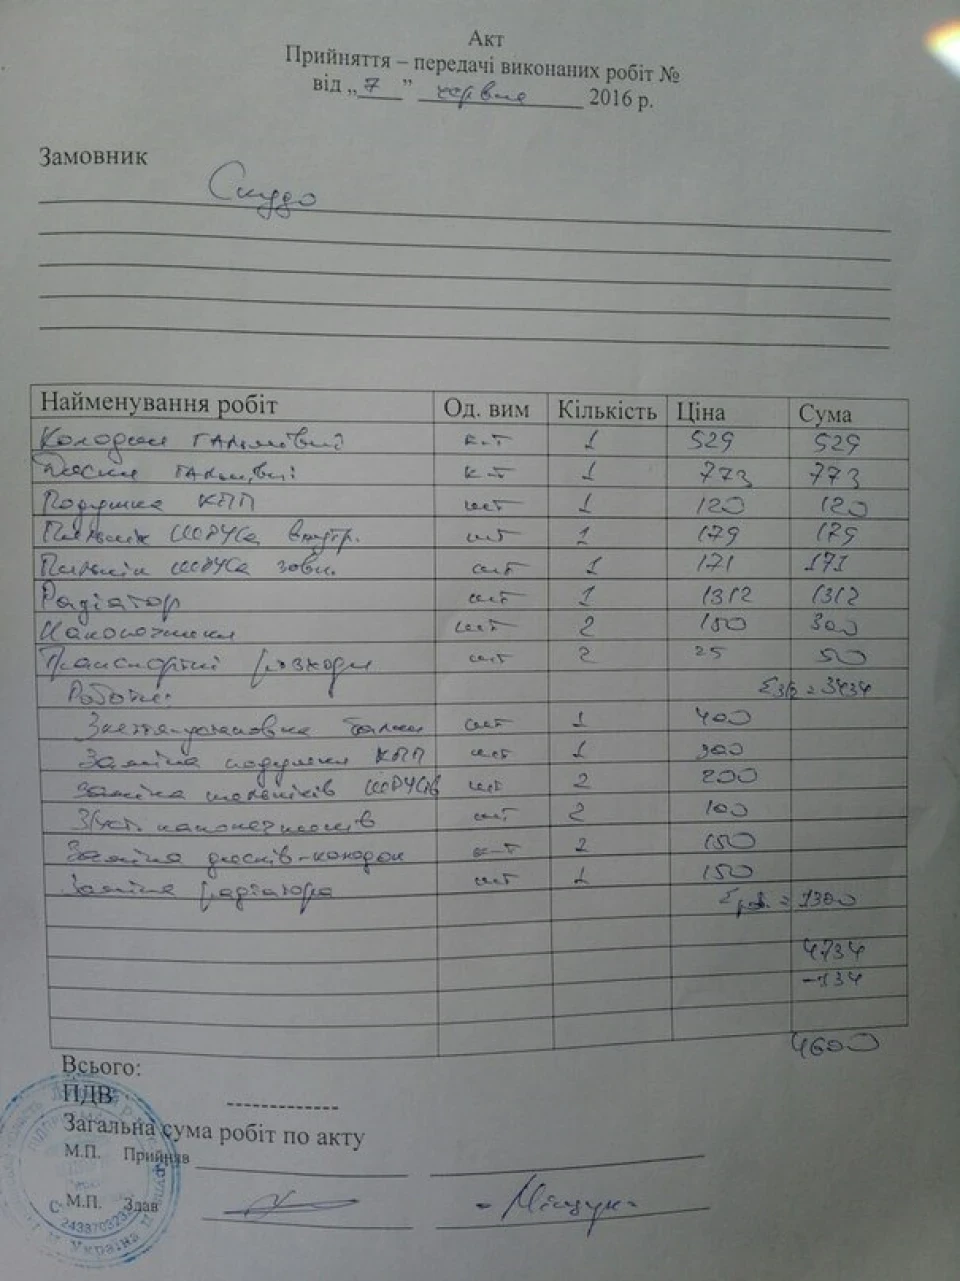 Акт
Прийняття – передачі виконаних робіт №
від „ 7 ” червня 2016 р.
Замовник
Скудо
Найменування робіт Од. вим Кількість Ціна Сума
Колодки гальмівні к-т 1 529 529
Диски гальмівні к-т 1 773 773
Подушка КПП шт 1 120 120
Пильник ШРУСа внутр. шт 1 179 179
Пильник ШРУСа зовн. шт 1 171 171
Радіатор шт 1 1312 1312
Наконечники шт 2 150 300
Транспортні розходи шт 2 25 50
Роботи: Σз/ч = 3434
Зняття-установка балки шт 1 400
Заміна подушки КПП шт 1 300
Заміна пильників ШРУСів шт 2 200
З/уст. наконечників шт 2 100
Заміна дисків-колодок к-т 2 150
Заміна радіатора шт 1 150
Σроб. = 1300
4734
-134
4600
Всього:
ПДВ
Загальна сума робіт по акту
М.П. Прийняв
М.П. Здав Міщук
Україна